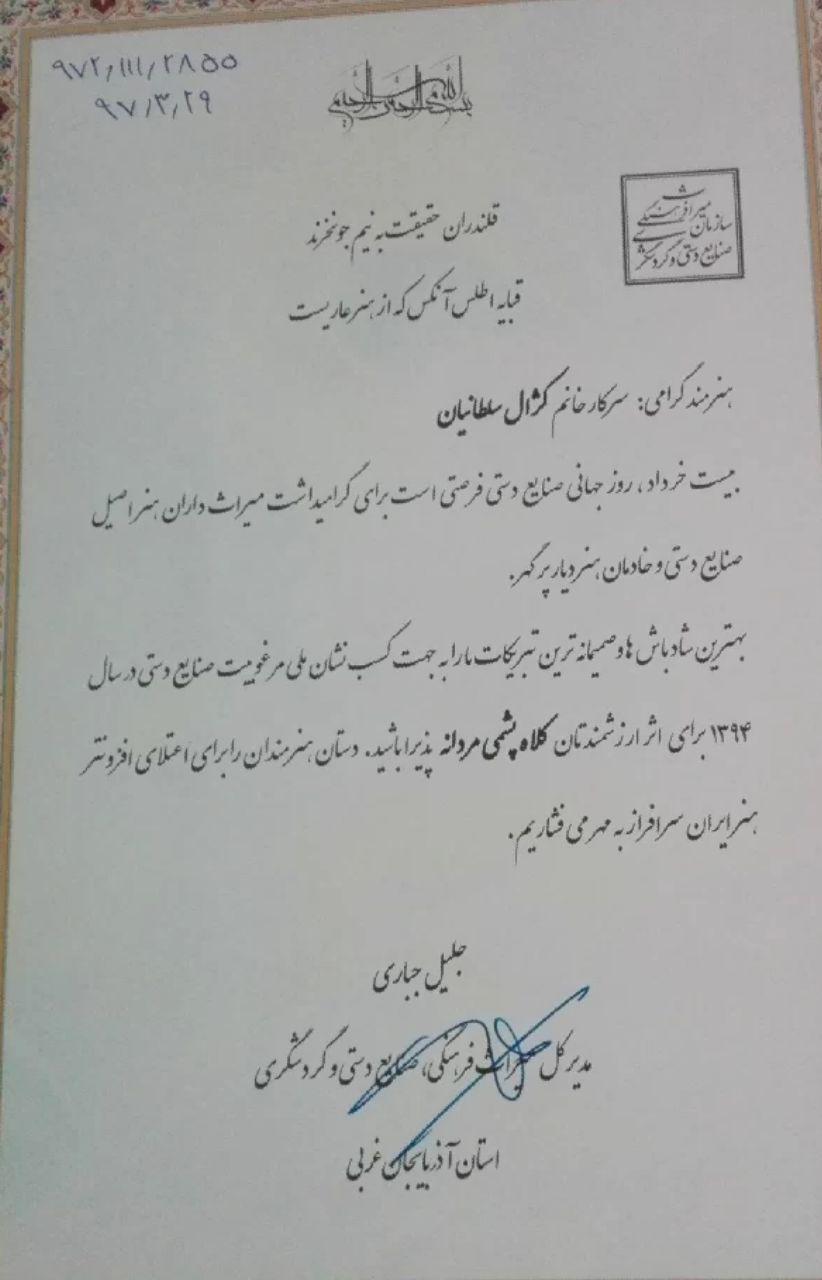 ۹۷۲/۱۱۱/۲۸۵۵
۹۷/۳/۲۹
بسم الله الرحمن الرحیم
سازمان میراث فرهنگی
صنایع دستی و گردشگری
قلندران حقیقت به نیم جو نخرند
قبایه اطلس آنکس که از هنر عاریست
هنرمند گرامی: سرکار خانم کژال سلطانیان
بیست خرداد، روز جهانی صنایع دستی فرصتی است برای گرامیداشت میراث داران هنر اصیل
صنایع دستی و خادمان هنر دیار پر گهر.
بهترین شادباش ها و صمیمانه ترین تبریکات ما را به جهت کسب نشان ملی مرغوبیت صنایع دستی در سال
۱۳۹۴ برای اثر ارزشمندتان کلاه پشمی مردانه پذیرا باشید. دستان هنرمندان را برای اعتلای افزونتر
هنر ایران سرافراز به مهر می فشاریم.
جلیل جباری
مدیر کل میراث فرهنگی، صنایع دستی و گردشگری
استان آذربایجان غربی